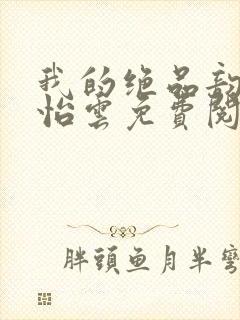 我的绝品
怡雲免費閱
胖頭魚月半彎